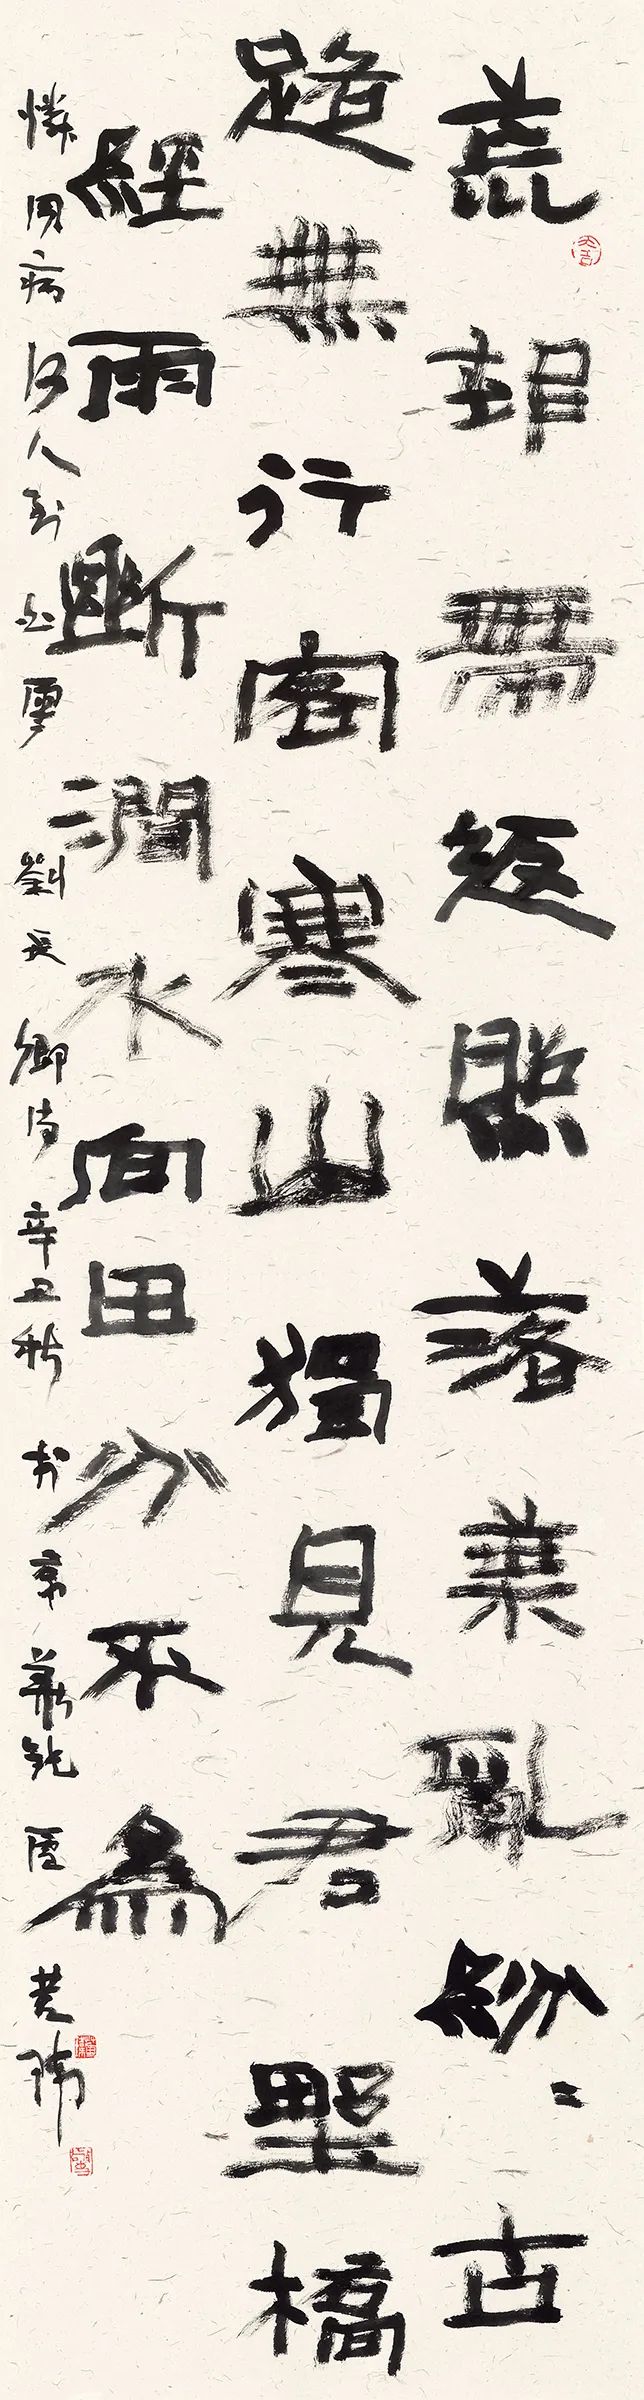 荒邨帶返照落葉亂紛〻古
路無行客寒山獨見君野橋
經雨斷澗水向田分不為
憐同病何人到白雲 劉長卿詩 辛丑秋於京華鈍廬 瑋